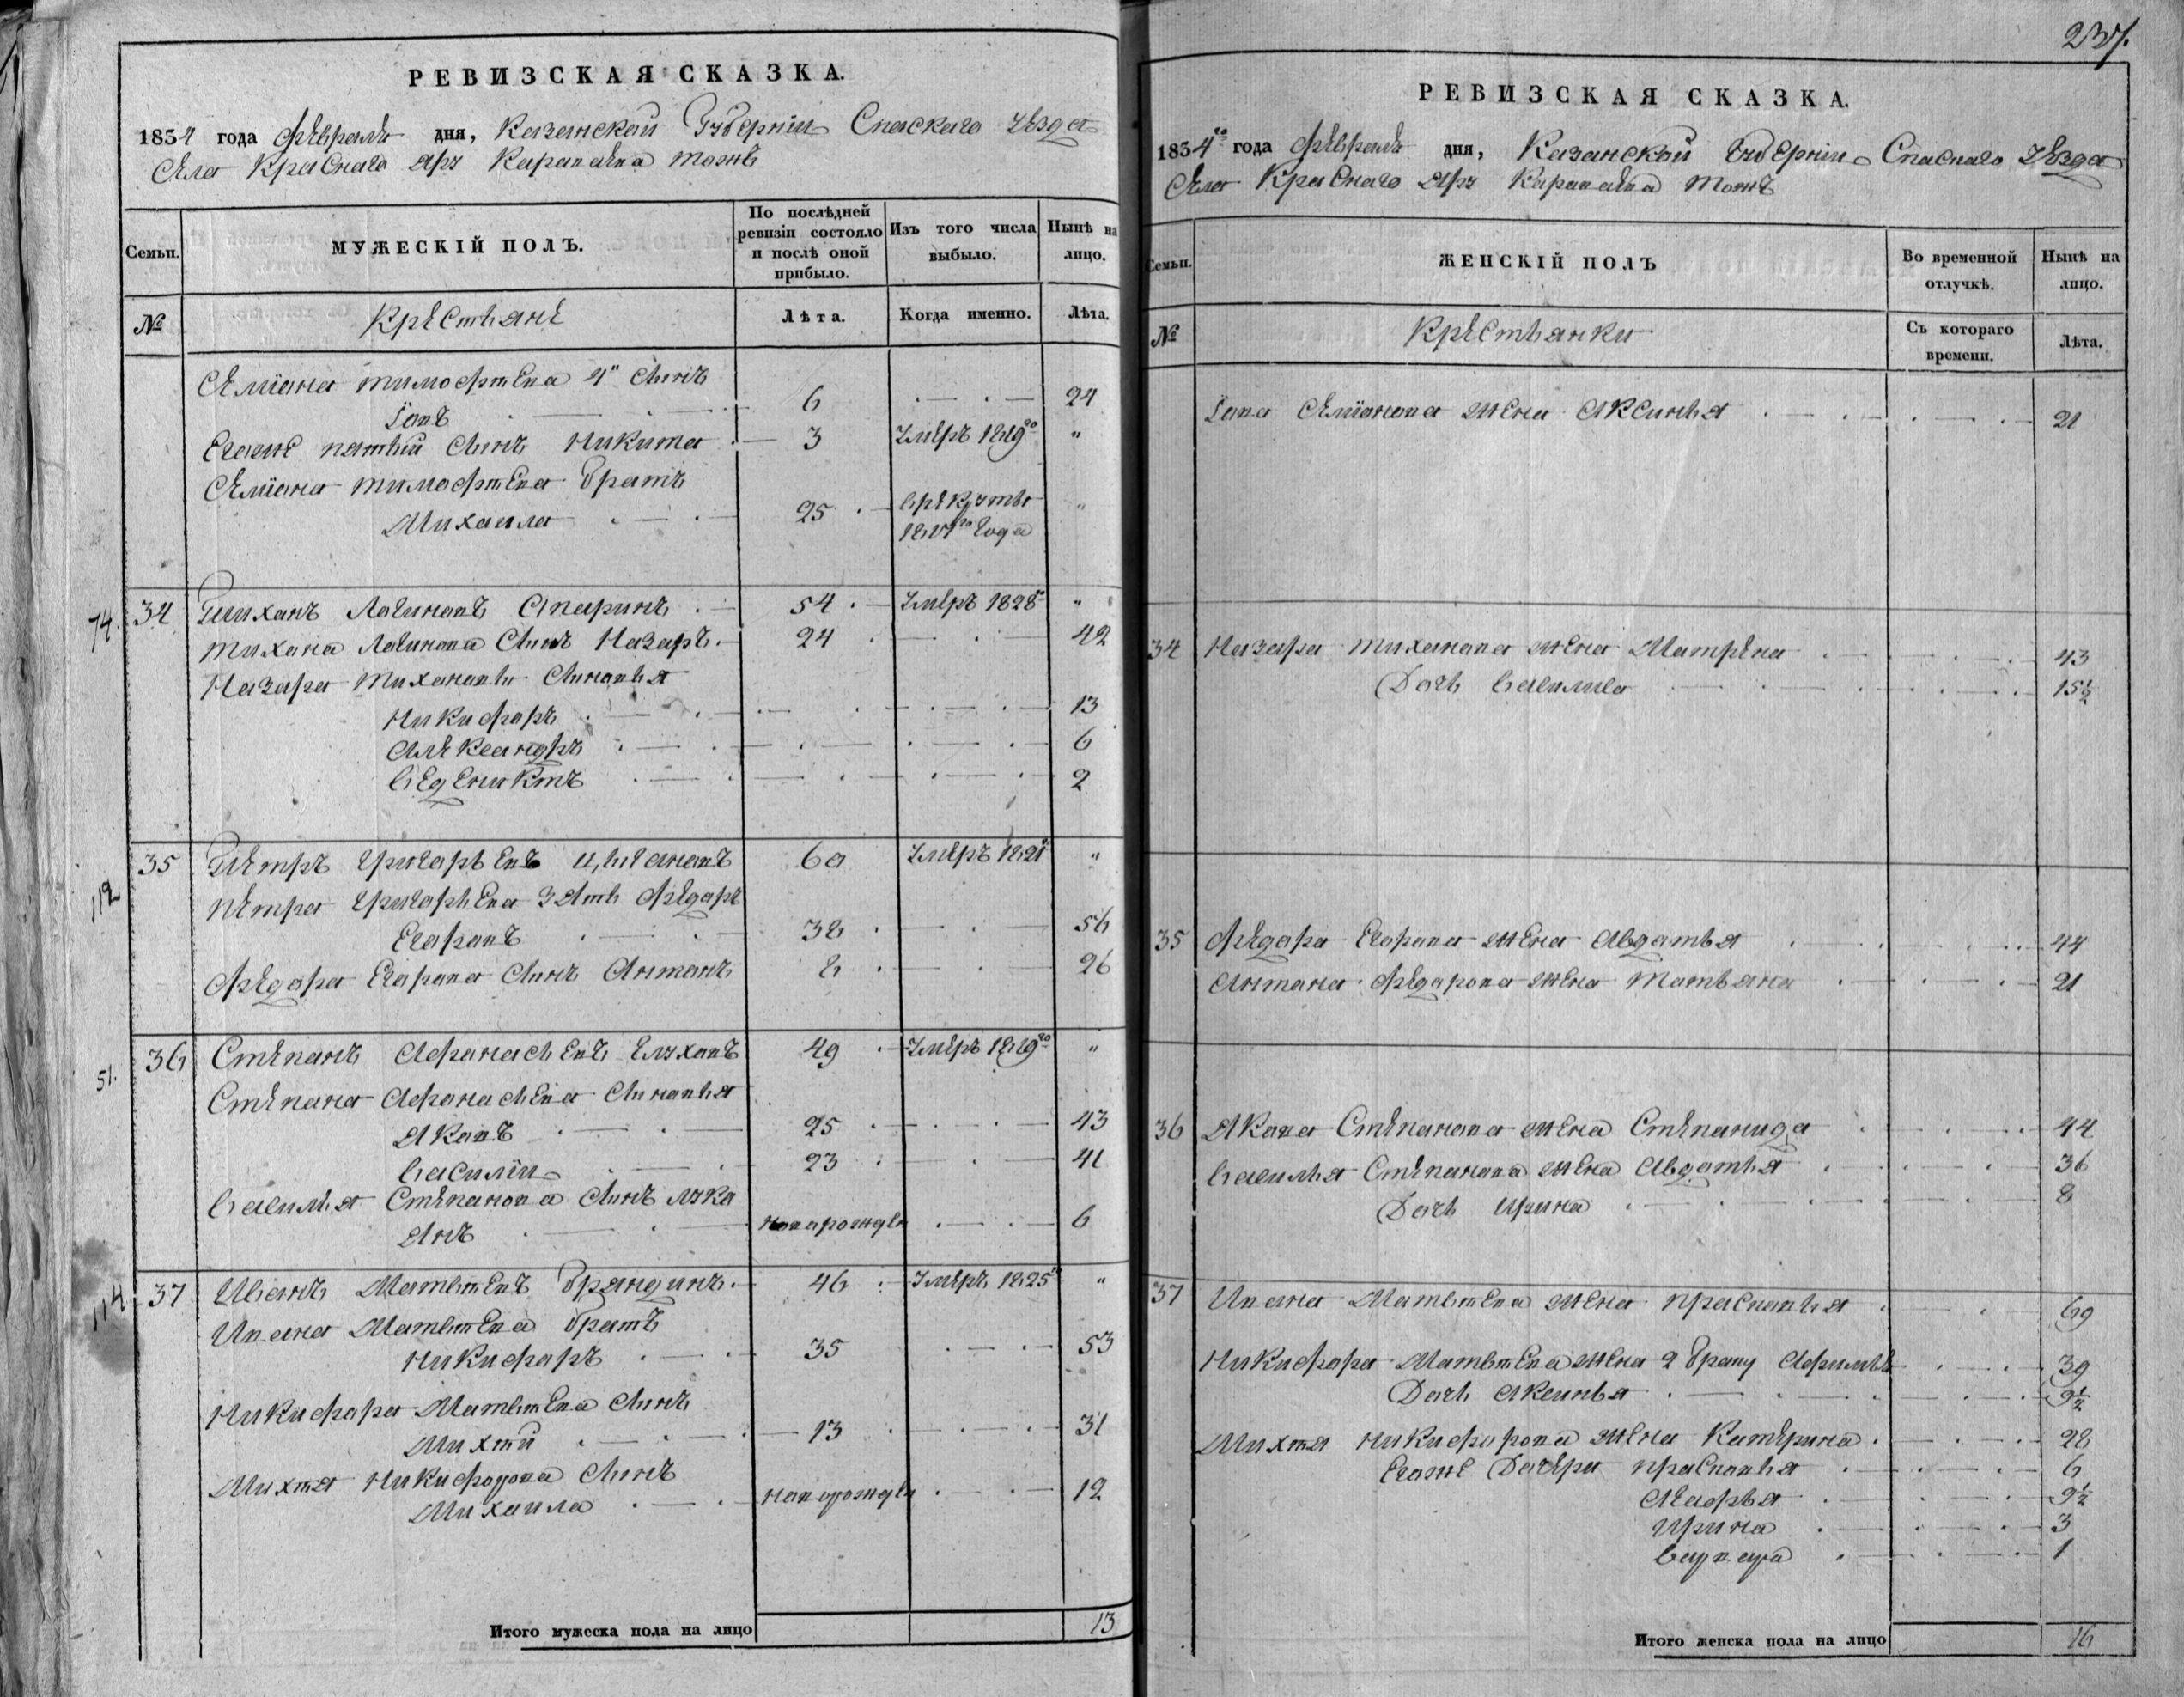 РЕВИЗСКАЯ СКАЗКА.
1834 года февраля дня, Казанской Губернии Спаскаго уезда
Села Краснаго Яру тожъ
Семьи.
МУЖЕСКІЙ ПОЛЪ.
По послѣдней ревизіи состояло и послѣ оной прибыло.
Изъ того числа выбыло.
Нынѣ на лицо.
№
Крестьяне
Лѣта.
Когда именно.
Лѣта.
Семиона тимофѣева 4й Сынъ
6 24
Егоже пятый Сынъ Никита 3 Умеръ 1819го "
Семиона тимофѣева братъ
Михаила 25 в рекруты "
года
74. 34 Тиханъ Логиновъ 54 Умеръ 1828 "
Тихана Логинова Сынъ Назаръ 24 42
Назара Тиханова Сыновья
Никифаръ 13
Александръ 6
ВеденикTъ 2
112 35 Петръ Григорьевъ 60 Умеръ 1821 "
Петра Григорьева Зять Федаръ
Егоровъ 38 56
Федара Егорова Сынъ Антонъ 8 26
51. 36 Степанъ Афонасьевъ Елховъ 49 Умеръ 1819го "
Степана Афонасьева Сыновья
Яковъ 25 43
Василии 23 41
Василья Степанова Сынъ Лука
янъ новорожден 6
114 37 Иванъ Матвѣевъ Брандинъ 46 Умеръ 1825 "
Ивана Матвѣева братъ
Никифаръ 35 53
Никифара Матвѣева Сынъ
Михѣй 13 31
Михѣя Никифорова Сынъ
Михаила новорожден 12
Итого мужеска пола на лицо 13
237.
РЕВИЗСКАЯ СКАЗКА.
1834го года февраля дня, Казанской Губернии Спаскаго уезда
Села Краснаго Яру тожъ
Семьи.
ЖЕНСКІЙ ПОЛЪ
Во временной отлучкѣ.
Нынѣ на лицо.
№
Крестьянки
Съ котораго времени.
Лѣта.
Семионова жена Аксинья 21
34 Назара Тиханова жена Матрена 43
Дочь Василиса 15½
35 Федара Егорова жена Авдатья 44
Антона Федарова жена Татьяна 21
36 Якова Степанова жена Степанида 44
Василья Степанова жена Авдатья 36
Дочь Ирина 8
37 Ивана Матвѣева жена Прасковья 69
Никифара Матвѣева жена 2 браку 39
Дочь Аксинья 9½
Михѣя Никифарова жена Катерина 28
Егоже Дочери Прасковья 6
Агафья 9½
Ирина 3
Варвара 1
Итого женска пола на лицо 16